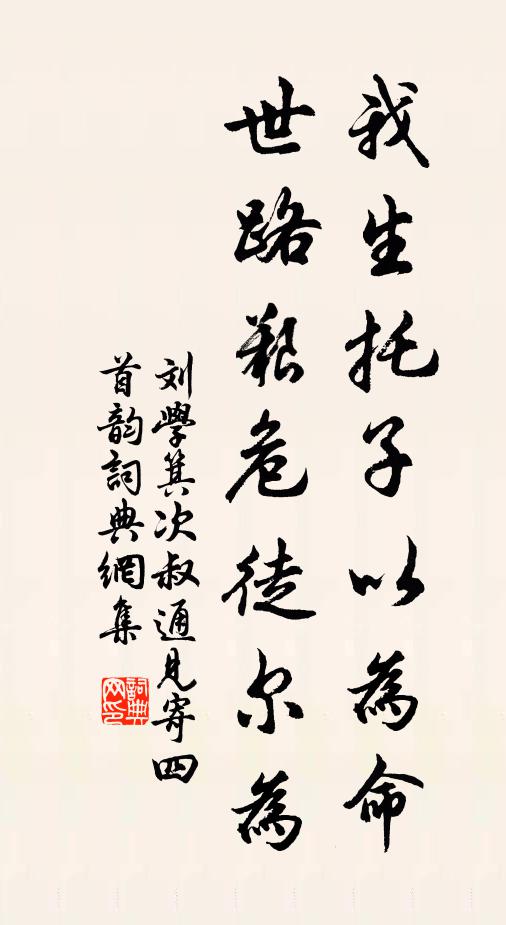 我生托子以為命
世路艱危徒尔為
刘學箕次叔通見寄四
首韵詞典網集
詞典
网印